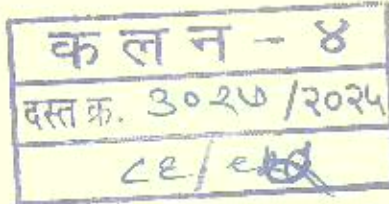 क ल न - ४
दस्त क्र. ३०२७/२०२५
८६/